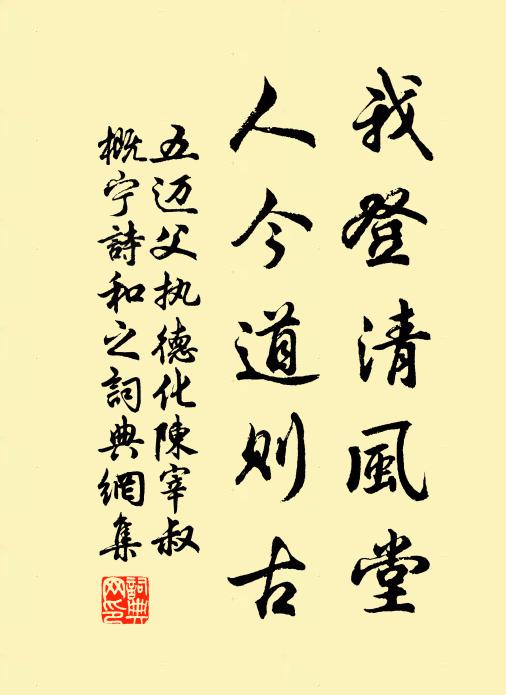 我登清風堂
人今道则古
五迈父执德化陳宰叔
概宁詩和之詞典網集
詞典網印